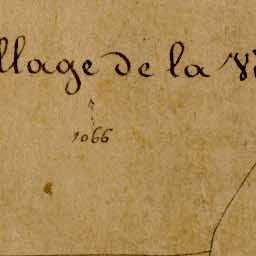 llage de la Vi
1066